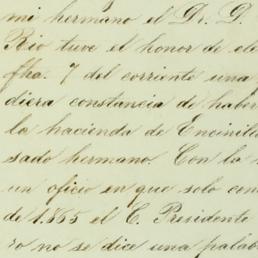 mi hermano el Dr. D.
Rio tuve el honor de ele
fha. 7 del corriente una
diera constancia de haber
la hacienda de Encinilla
sado hermano. Con la
un oficio en que solo con
de 1865 el C. Presidente
ro no se dice una palab